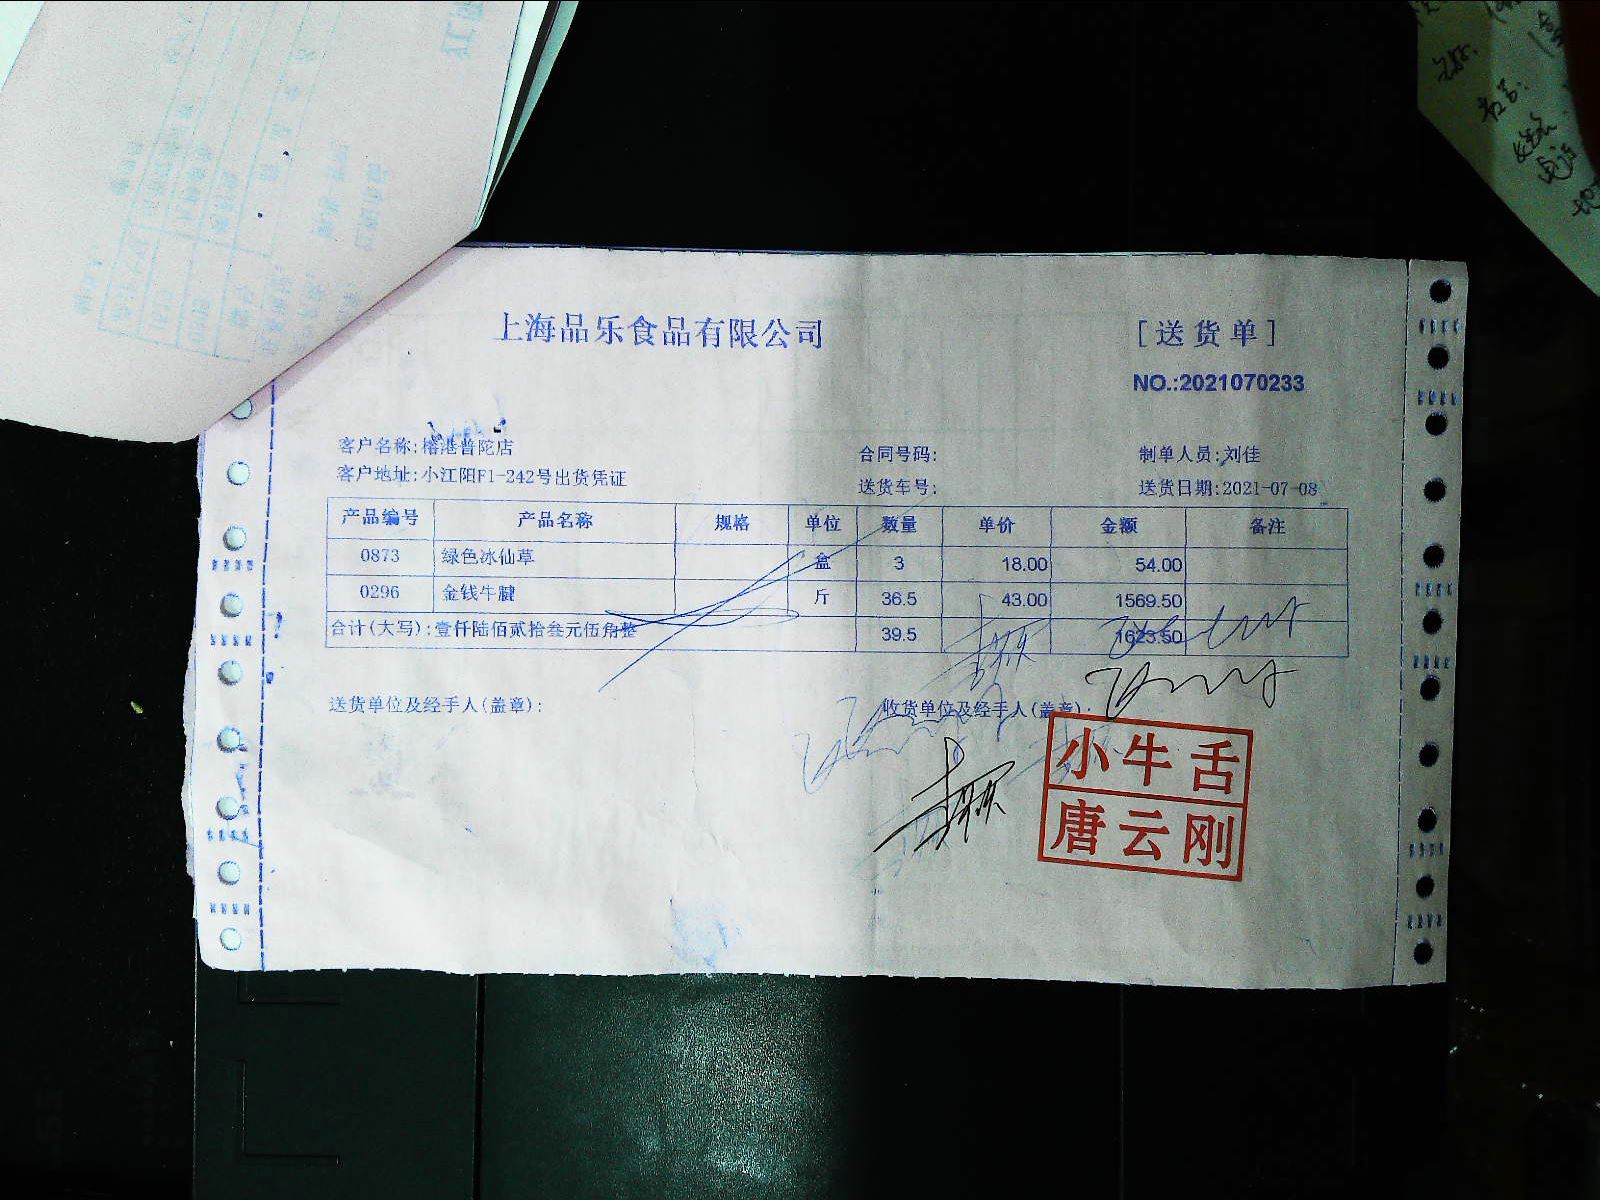 上海品乐食品有限公司
[送货单]
NO.:2021070233
客户名称:榕港普陀店
合同号码:
制单人员:刘佳
客户地址:小江阳F1-242号出货凭证
送货车号:
送货日期:2021-07-08
产品编号 产品名称 规格 单位 数量 单价 金额 备注
0873 绿色冰仙草 盒 3 18.00 54.00
0296 金钱牛腱 斤 36.5 43.00 1569.50
合计(大写):壹仟陆佰贰拾叁元伍角整 39.5 1623.50
送货单位及经手人(盖章):
收货单位及经手人(盖章):
小牛舌
唐云刚